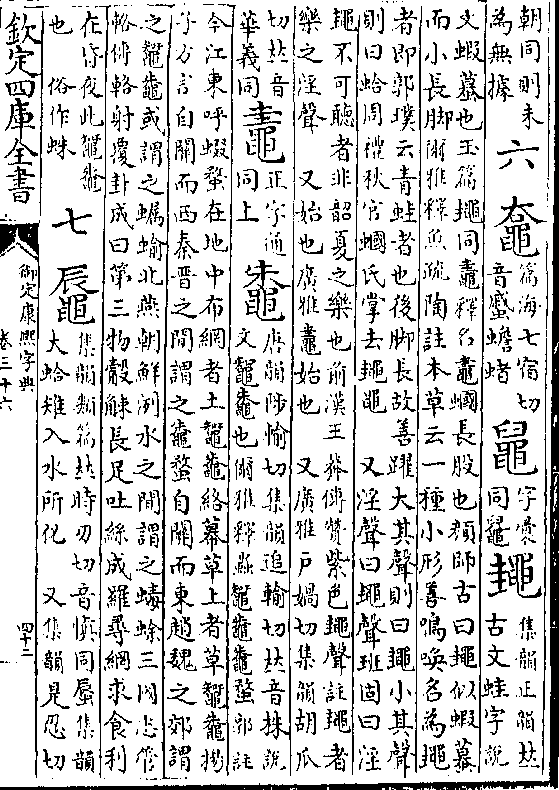 朝同則未
為無據
六
篇海七宿切
音蹙蟾蜍
字彙
同鼀
䵷
集韻正韻𠀤
古文蛙字說
文蝦蟇也玉篇䵷同鼃釋名鼃蟈長股也顏師古曰䵷似蝦蟇
而小長脚爾雅釋魚疏陶註本草云一種小形善鳴喚名為䵷
者即郭璞云青蛙者也後脚長故善躍大其聲則曰䵷小其聲
則曰蛤周禮秋官蟈氏掌去䵷黽 又淫聲曰䵷聲班固曰淫
䵷不可聽者非韶夏之樂也前漢王莽傳贊紫色䵷聲註䵷者
樂之淫聲 又始也廣雅鼃始也 又廣雅戶媧切集韻胡瓜
切𠀤音
華義同
鼃
正字通
同上
鼄
唐韻陟愉切集韻追輸切𠀤音株說
文鼅鼄也爾雅釋蟲鼅鼄鼄蝥郭註
今江東呼蝃蝥在地中布網者土鼅鼄絡幕草上者草鼅鼄揚
子方言自關而西秦晉之間謂之鼄蝥自關而東趙魏之郊謂
之鼅鼄或謂之蠾蝓北燕朝鮮洌水之間謂之蝳蜍三國志管
輅傳輅射覆卦成曰第三物觳觫長足吐絲成羅尋網求食利
在昏夜此鼅鼄
也 俗作蛛
七
集韻類篇𠀤時刃切音慎同蜃集韻
大蛤雉入水所化 又集韻是忍切
欽定四庫全書
御定康熙字典
卷三十六
四十二